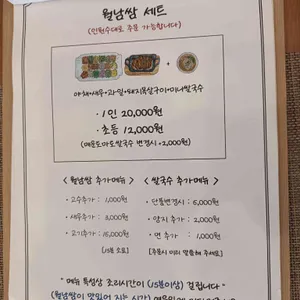 월남쌈 세트
(인원수대로 주문 가능합니다)
야채+새우+과일+돼지목살구이+미니쌀국수
· 1인 20,000원
· 초등 12,000원
(매운토마토쌀국수 변경시+2,000원)
<월남쌈 추가메뉴>
· 고수추가 : 1,000원
· 새우추가 : 3,000원
· 고기추가 : 15,000원
[15분 소요]
<쌀국수 추가메뉴>
· 단품변경시 : 6,000원
· 양지 추가 : 2,000원
· 면 추가 : 1,000원
[주문시 미리 말씀해 주세요]
" 메뉴 특성상 조리시간이 (15분이상) 걸립니다 "
(월남쌈이 맛있어 지는 시간)